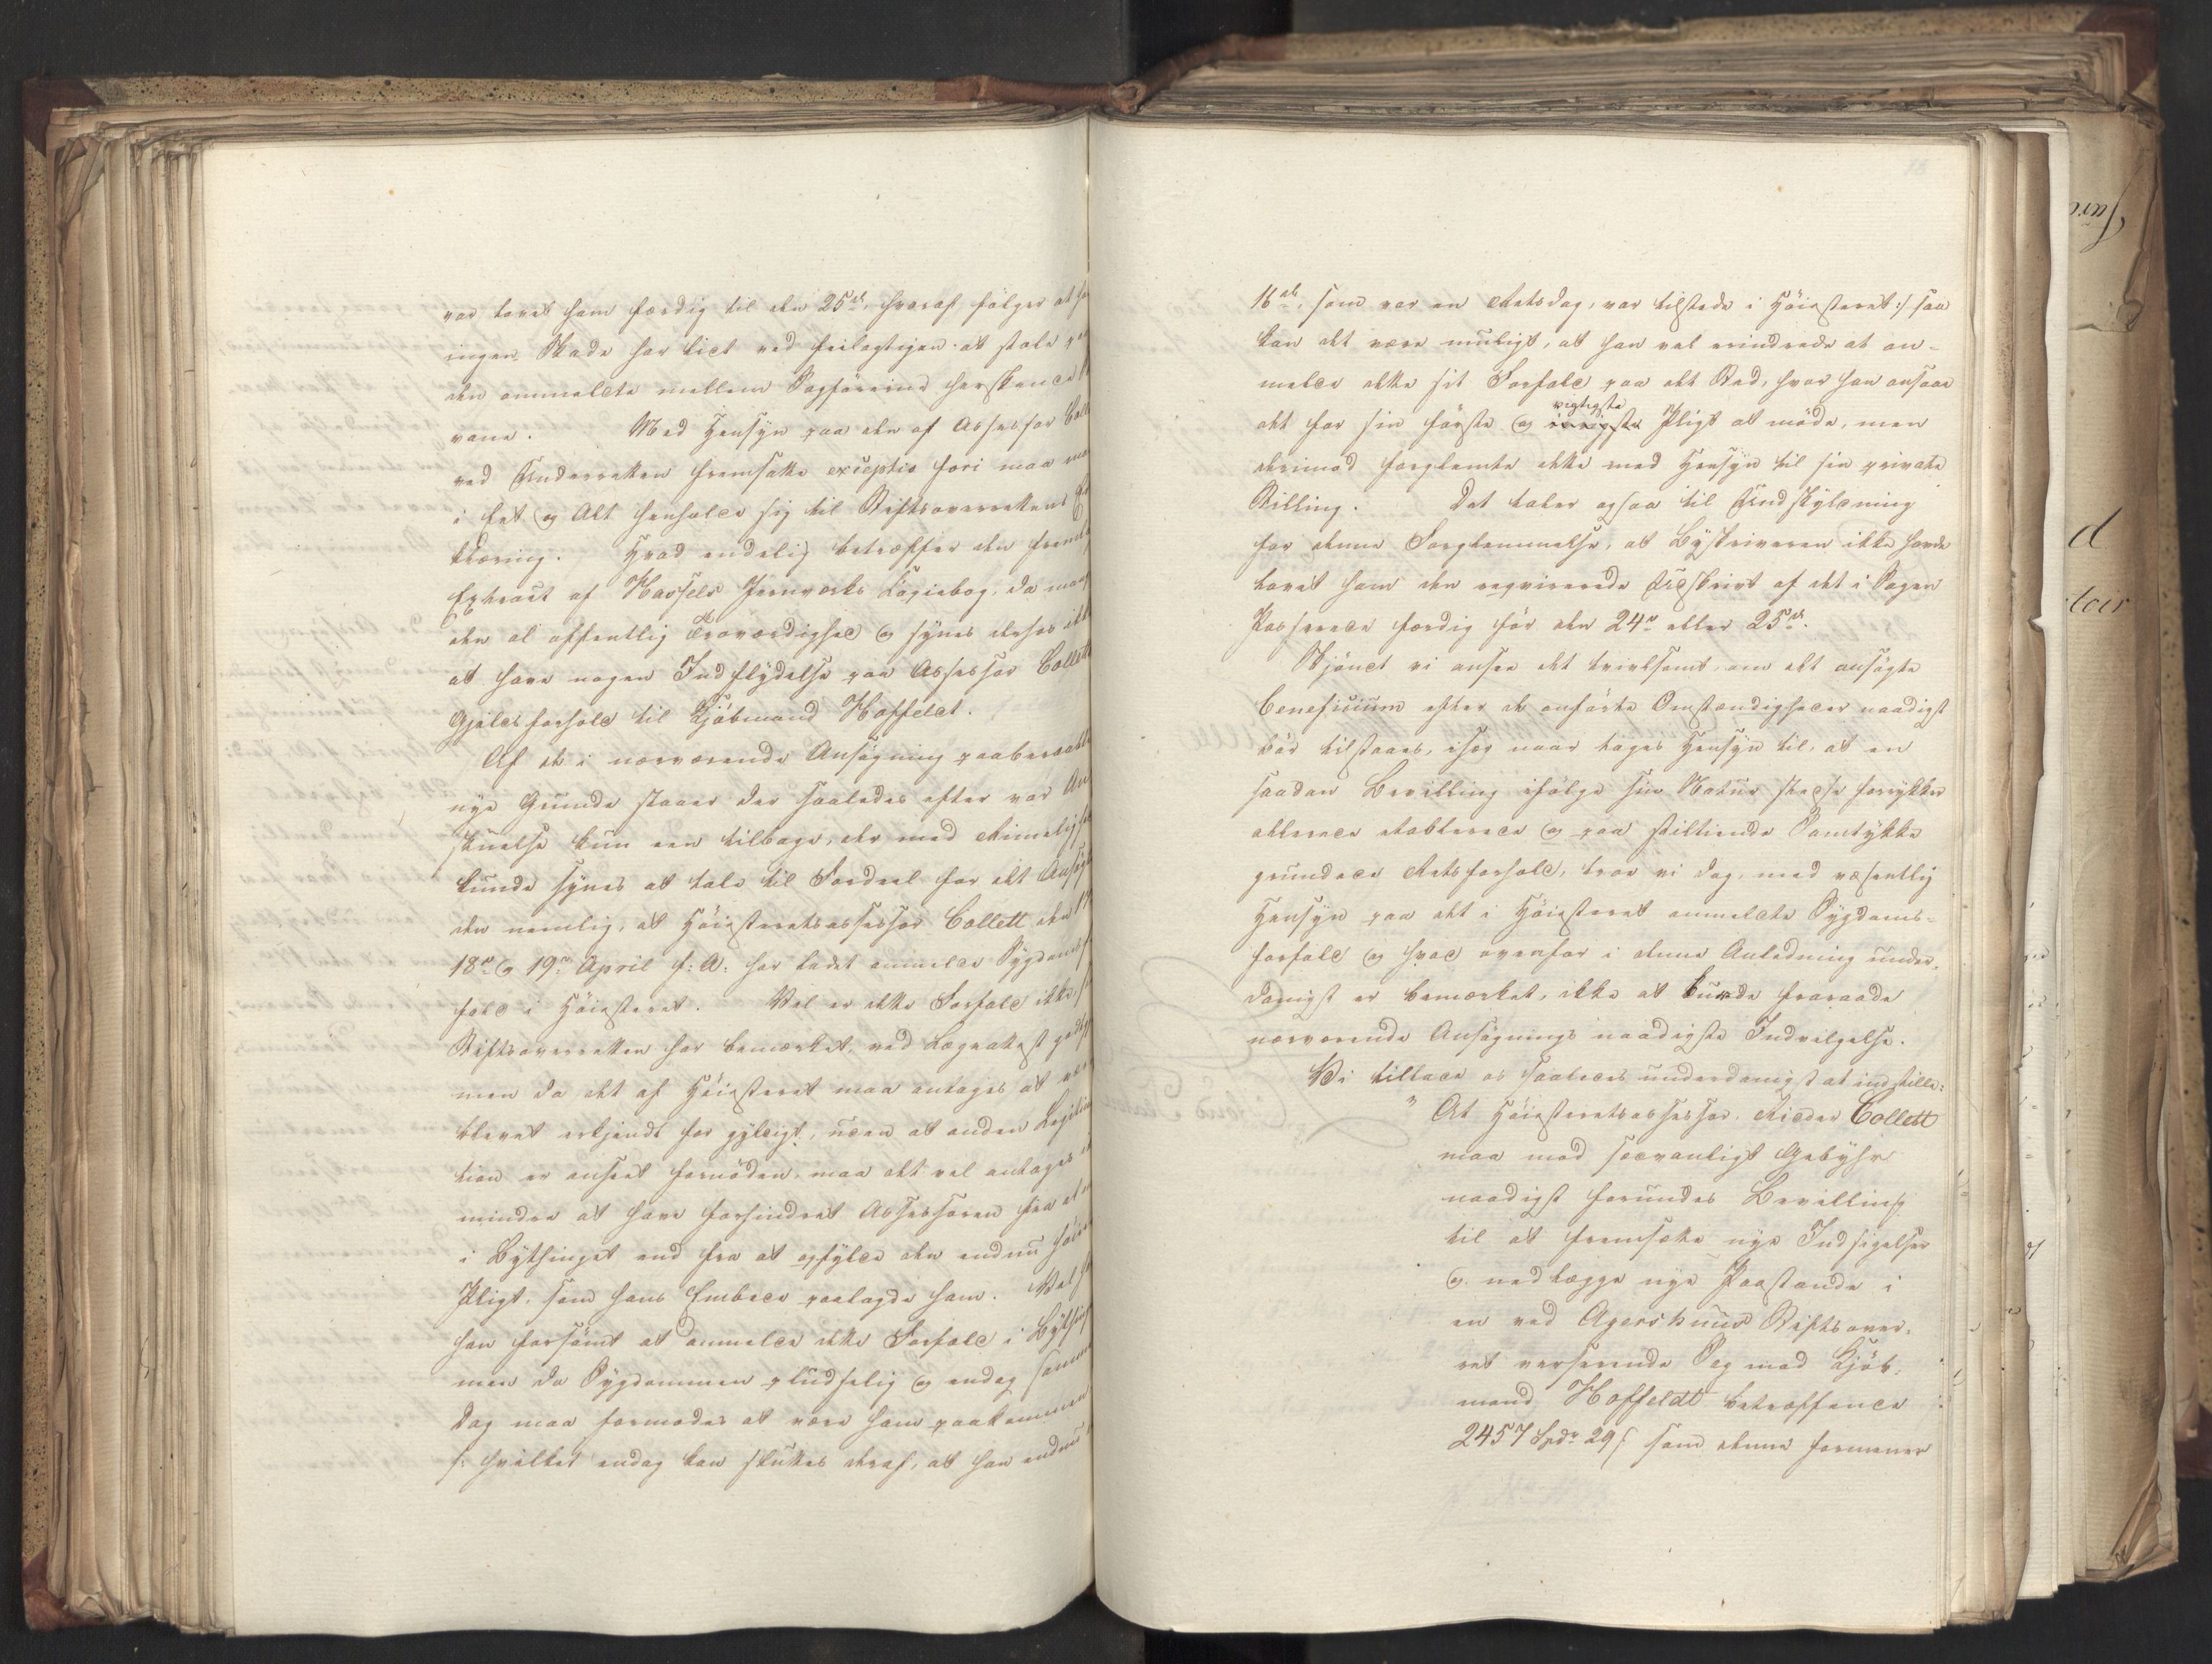 var lovet ham færdig til den 25de, hvoraf følger at
ingen Skade har lidt ved feilagtigen at stole
den ommeldte mellem Sagførerne herskende
vane. Med Hensyn paa den af Assessor Coll
ved Underretten fremsatte exceptio fori maa
i Eet og Alt henholde sig til Stiftsoverrettens
klæring. Hvad endelig betræffer den
Extract af Hassels Jernværks Copiebog, da
den al offentlig Troværdighed og synes desse ikke
at have nogen Indflydelse paa Assessor Collett
Gjældsforhold til Kjøbmand Hoffeldt.
Af de i nærværende Ansøgning paaberaabte
nye Grunde staaer der saaledes efter vor An
skuelse kun een tilbage, der med Rimelighe
kunde synes at tale til Fordeel for det Ansøgt
den nemlig, at Høiesteretsassessor Collett den 17
18de og 19de April f: A: har ladet anmelde Sygdoms
fald i Høiesteret. Vel er dette Forfald ikke,
Stiftsoverretten har bemærket, ved Lægeattest
men da det af Høiesteret maa antages at
blevet erkjendt for gyldigt, uden at anden Legitima
tion er anseet fornøden, maa det vel antages
mindre at have forhindret Assessoren fra at
i Bythinget end fra at opfylde den endnu høie
Pligt, som hans Embede paalagde ham. Vel
han forsømt at anmelde dette Forfald i Bything
men da Sygdommen pludselig og endog samme
Dag maa formodes at være ham paakommen
/: hvilket endog kan sluttes deraf, at han endnu
16de, som var en Retsdag, var tilstede i Høiesteret :/ saa
kan det være muligt, at han vel erindrede at an-
melde dette sit Forfald paa det Sted, hvor han ansaae
det for sin første og vigtigste Pligt at møde, men
derimod forglemte dette med Hensyn til sin private
Stilling. Det taler ogsaa til Undskyldning
for denne Forglemmelse, at Byskriveren ikke havde
lovet ham den reqvirerede Udskrivt af det i Sagen
Passerede færdig før den 24de eller 25de.
Skjøndt vi ansee det tvivlsomt, om det ansøgte
beneficium efter de anførte Omstændigheder naadigst
bør tilstaaes, især naar tages Hensyn til, at en
saadan Bevilling ifølge sin Natur stedse forrykker
allerede etablerede og paa stiltiende Samtykke
grundede Retsforhold, troe vi dog, med væsentlig
Hensyn paa det i Høiesteret anmeldte Sygdoms-
forfald og hvad ovenfor i denne Anledning under-
danigst er bemærket, ikke at burde fraraade
nærværende Ansøgnings naadigste Indvilgelse.
Vi tillade os saaledes underdanigst at indstille:
" At Høiesteretsassessor, Ridder Collett
maa mod sædvanligt Gebyhr
naadigst forundes Bevilling
til at fremsætte nye Indsigelser
og nedlægge nye Paastande i
en ved Agershuus Stiftsover-
ret verserende Sag mod Kjøb-
mand Hoffeldt betræffende
2457 Spdr 29 s som denne formener